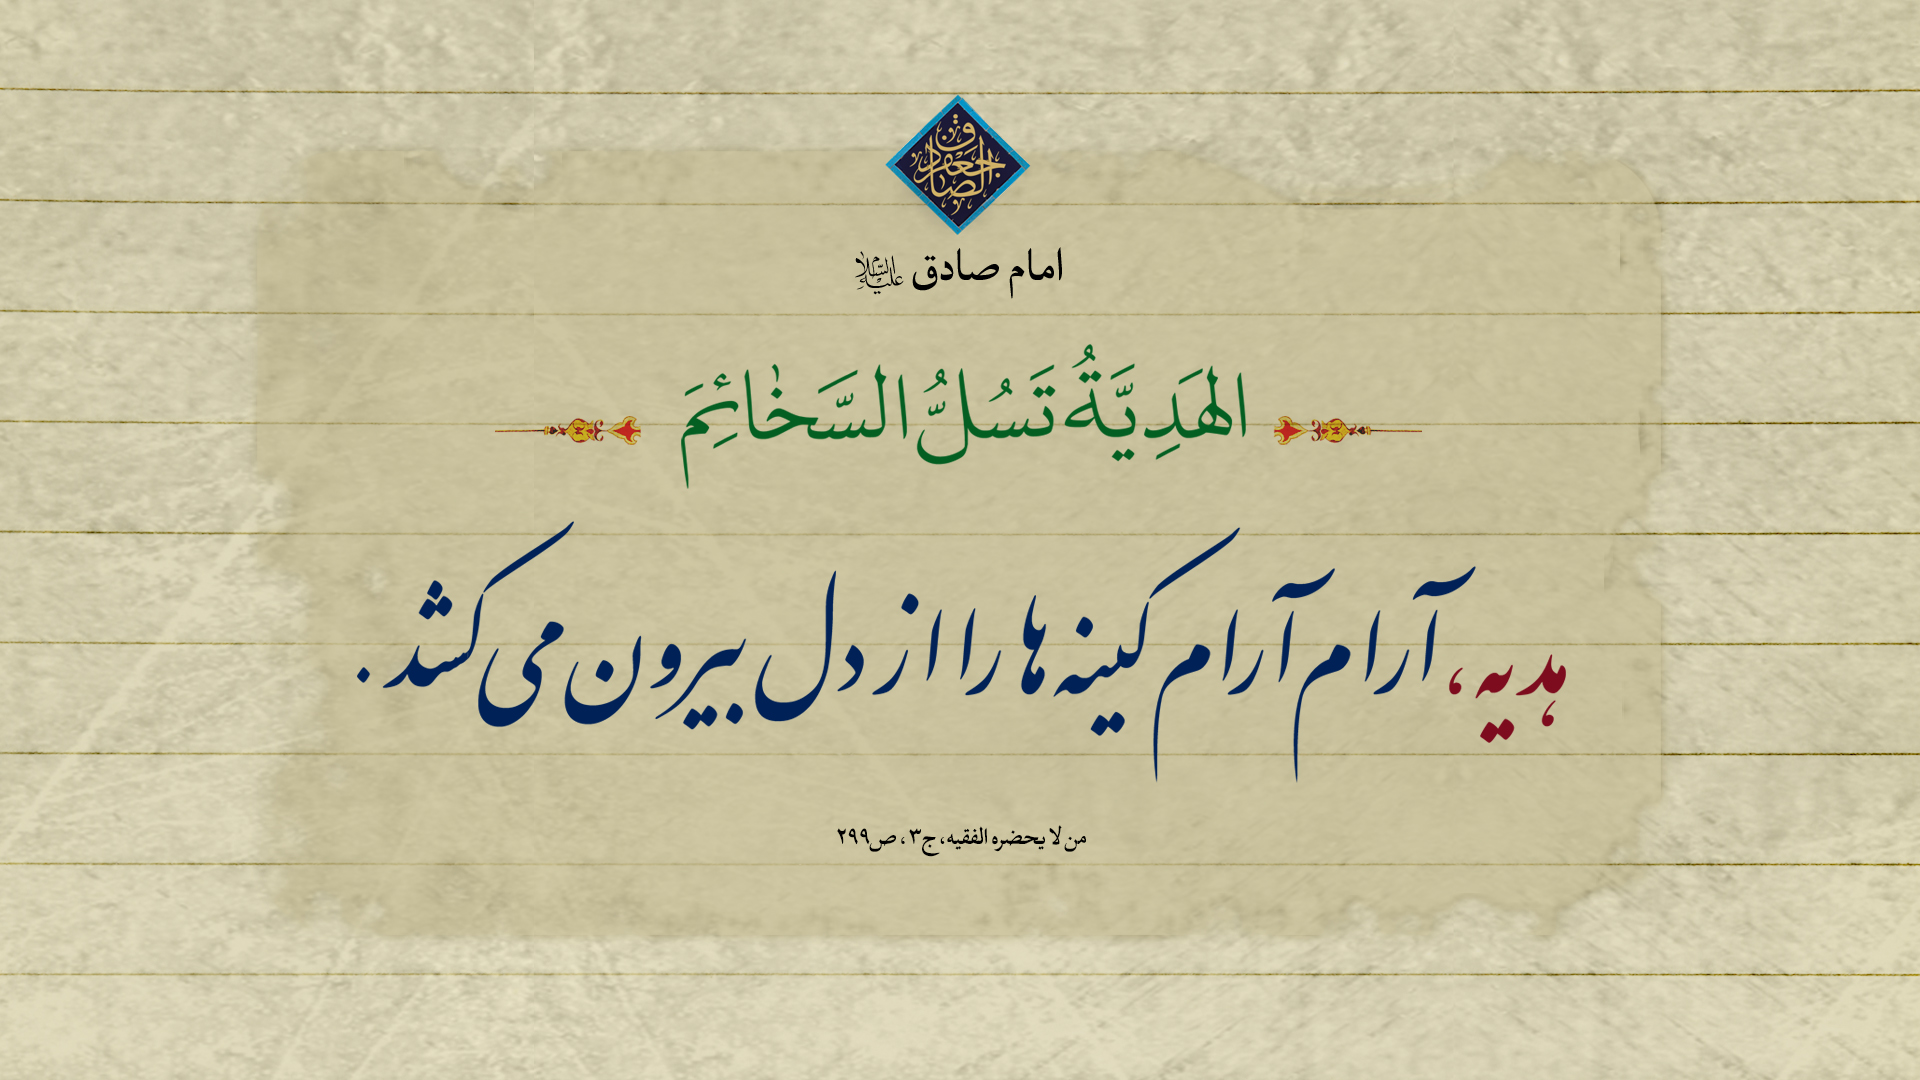 جعفر الصادق
امام صادق علیه السلام
الهَدِیَّةُ تَسُلُّ السَّخٰائِمَ
هدیه، آرام آرام کینه ها را از دل بیرون می کشد.
من لا یحضره الفقیه، ج۳، ص۲۹۹